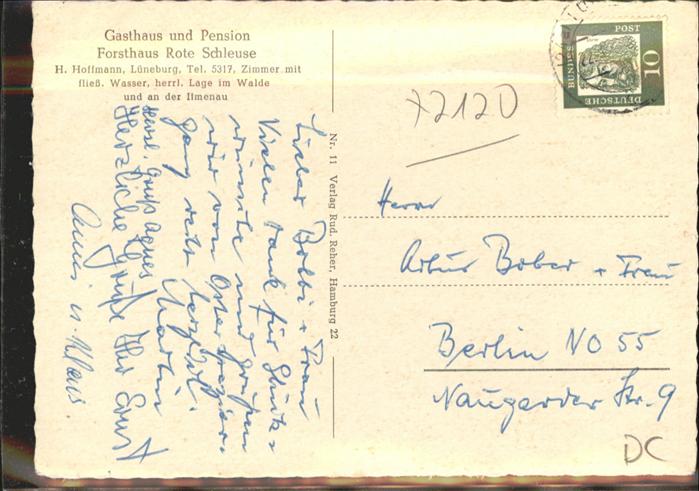 Gasthaus und Pension
Forsthaus Rote Schleuse
H. Hoffmann, Lüneburg, Tel. 5317, Zimmer mit
fließ. Wasser, herrl. Lage im Walde
und an der Ilmenau
Lieber Bobbi + Frau
Vielen Dank für Glück-
wünsche und Grüßen
wir vom Osterspazier-
gang recht herzlichst.
Martin
Herzl. Gruß Agnes
Herzliche Grüße Ihr Ernst
u. Klaus.
Nr. 11 Verlag Rud. Reher, Hamburg 22
DEUTSCHE
BUNDES
POST
10
x2120
Herrn
Artur Bober + Frau
Berlin NO 55
Naugarder Str. 9
DC